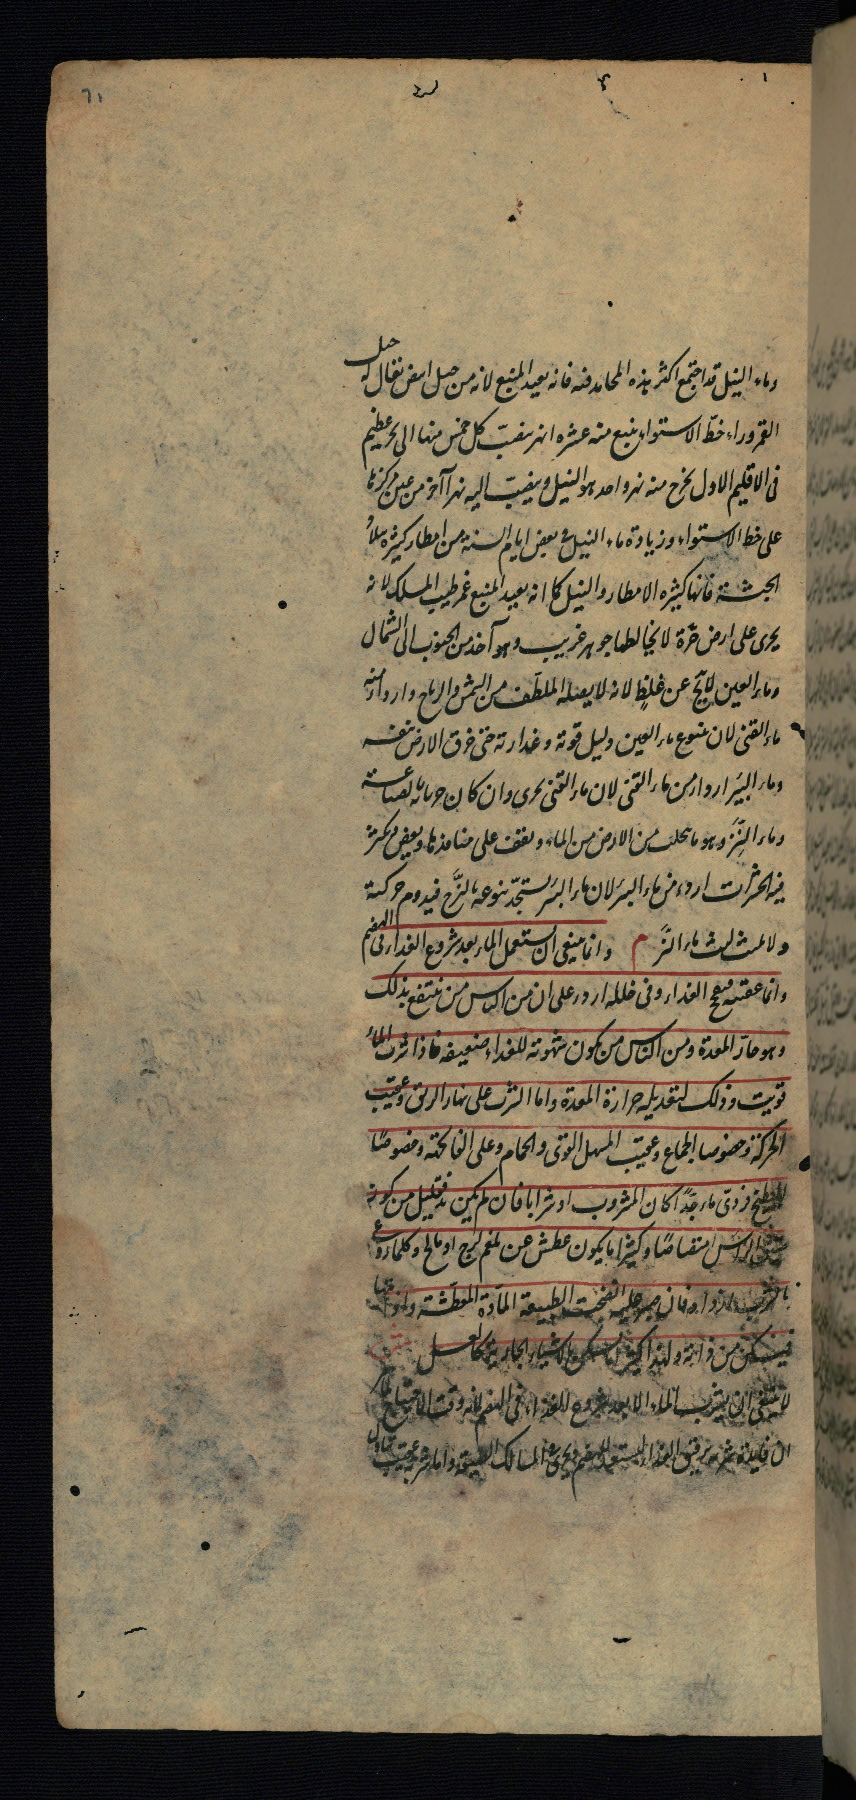 ٦١
وماء النيل قد اجتمع اكثر هذه المحامد فيه فانه بعيد المنبع لانه من جبل ابيض يقال له جبل
القمر وراء خط الاستواء ينبع منه عشره انهر ينصب كل خمس منها الى بحر عظيم
فى الاقليم الاول يخرج منه نهر واحد هو النيل وينصب اليه نهر آخر من عين مركزها
على خط الاستواء وزيادة ماء النيل فى بعض ايام السنة من امطار كثيرة ببلاد
الحبشة فانها كثيره الامطار والنيل كما انه بعيد المنبع غمر طيب المسلك لانه
يجرى على ارض حرة لا يخالطها جوهر غريب وهو آخذ من الجنوب الى الشمال
وماء العين لا يخ عن غلظ لانه لا يصله الملطف من الشمس والرياح واردأ منه
ماء القنى لان ينبوع ماء العين دليل قوته وغدارته حتى خرق الارض بنفسه
وماء البير اردأ من ماء القنى لان ماء القنى يجرى وان كان جريانه بصناعة
وماء النز وهو ما يتحلب من الارض من الماء ويقف على منافذها ويعفن ويكثر
فيه الحشرات اردء من ماء البير لان ماء البير يستجد بنوعه بالنزح فيدوم حركته
ولا لبث لبث ماء النز م وانما ينبغى ان يستعمل الماء بعد شروع الغداء فى الهضم
وانما عقبه فيفج الغداء وفى خلله اردء على ان من الناس من ينتفع بذلك
وهو حار المعدة ومن الناس من يكون شهوته للغداء ضعيفه فاذا شرب الماء
قويت وذلك لتعديله حرارة المعدة واما الشرب على نهار الريق وعقيب
الحركة وخصوصا الجماع وعقيب المسهل القوى والحمام وعلى الفاكهة وخصوصا
البطيخ فردى ماء جدا كان المشروب او شرابا فان لم يكن بد فقليل من كوزه
ضيق الراس امتصاصا وكثيرا ما يكون عطش عن بلغم لزج او مالح وكلما روعى
بالشرب ازداد فان صبر عليه انضجت الطبيعة المادة المعطشة واذابتها
فيسكن من ذاته ولهذا كثيرا ما يسكن بالاشياء الحارية كالعسل
لا ينبغى ان يشرب الماء الا بعد شروع للغداء فى الهضم لانه وقت الاحتياج
ان فايدة شربه ترقيق الغداء ليستعد للهضم ويجرى فى المسالك الضيقة واما شربه عقيب تناول